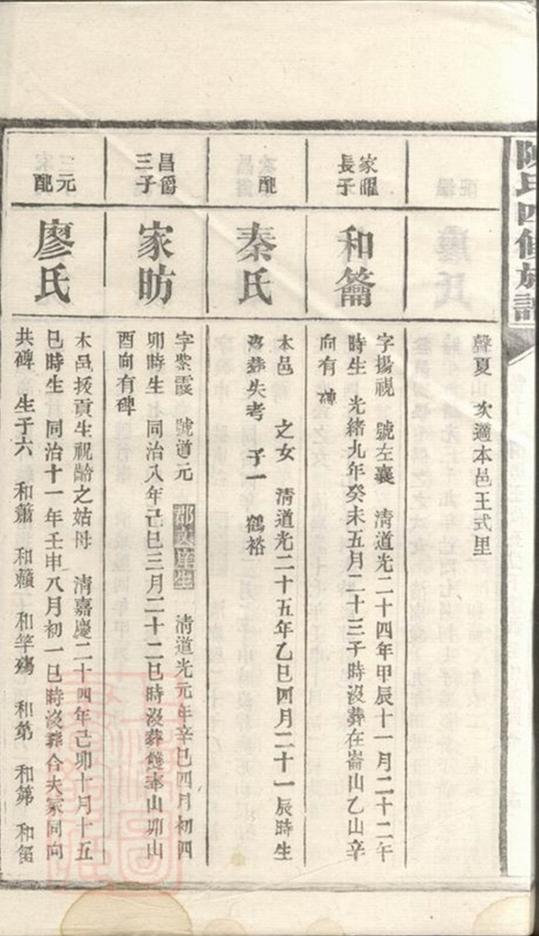 陳氏四修族譜
聲夏 次適本邑王式里
家曜
長子
和籥
字揚視 號左襄 清道光二十四年甲辰十一月二十二午
時生 光緒九年癸未五月二十三子時沒葬在崙山乙山辛
向有碑
配
秦氏
本邑 之女 清道光二十五年乙巳四月二十一辰時生
沒葬失考 子一 鶴裕
昌爵
三子
家昉
字紫霞 號道元 郡庠生 清道光元年辛巳四月初四
卯時生 同治八年己巳三月二十二巳時沒葬雙本山卯山
酉向有碑
三元
配
廖氏
本邑拔貢生視齡之姑母 清嘉慶二十四年己卯十月十五
巳時生 同治十一年壬申八月初一巳時沒葬合夫冢同向
共碑 生子六 和蕭 和籟 和竽殤 和第 和第 和笛